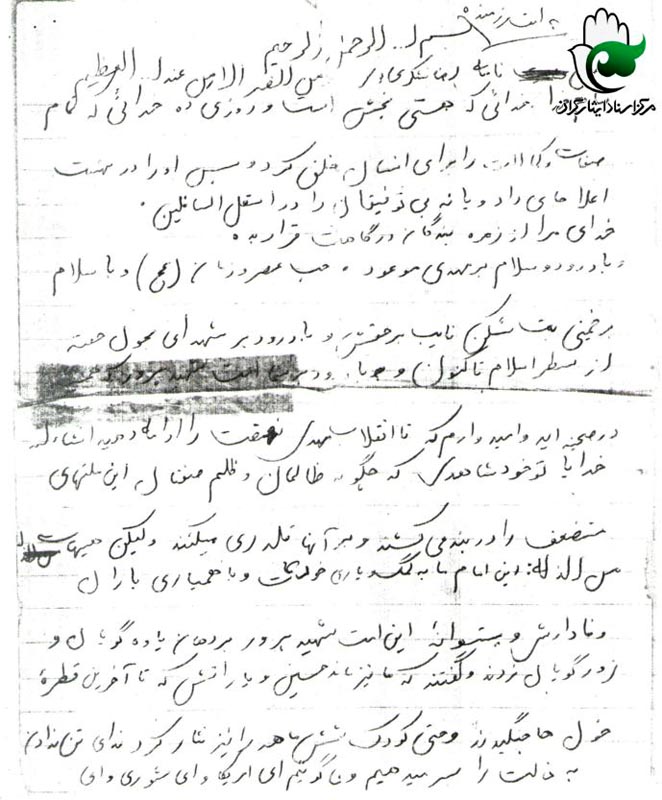 بسم الله الرحمن الرحیم
مرکز اسناد ایثارگران
خدائی که هستی بخش است و روزی ده خدائی که تمام
صفات و کمالات را برای انسان خلق کرد و سپس او را در بهشت
اعلا جای داد و یا نه بی توفیقان را در اسفل السافلین.
خدای مرا از زمره بندگان درگاهت قرار بده
و با درود و سلام بر مهدی موعود صاحب عصر و زمان (عج) و با سلام
بر خمینی بت شکن نایب بر حقش و با درود بر شهدای بخون خفته
از صدر اسلام تا کنون و با درود
در صحنه اید و امیدوارم که تا انقلاب مهدی نهضت را ادامه دهید انشاءاله
خدایا تو خود شاهدی که چگونه ظالمان و ظلم صفتان این ملتهای
مستضعف را در بند می کشند و بر آنها قلدری میکنند ولیکن هیهات
من الذله: این امام ما به کمک و یاری خداوند و با همیاری یاران
وفادارش و پشتوانه این امت شهید پرور بر دهان یاوه گویان و
زورگویان زدند و گفتند که ما نیز مانند حسین و یارانش که تا آخرین قطره
خون جنگیدند و حتی کودک شش ماهه را نیز نثار کرد ندای تن ندادن
به ذلت را سر میدهیم و میگوئیم ای امریکا و ای شوروی و ای